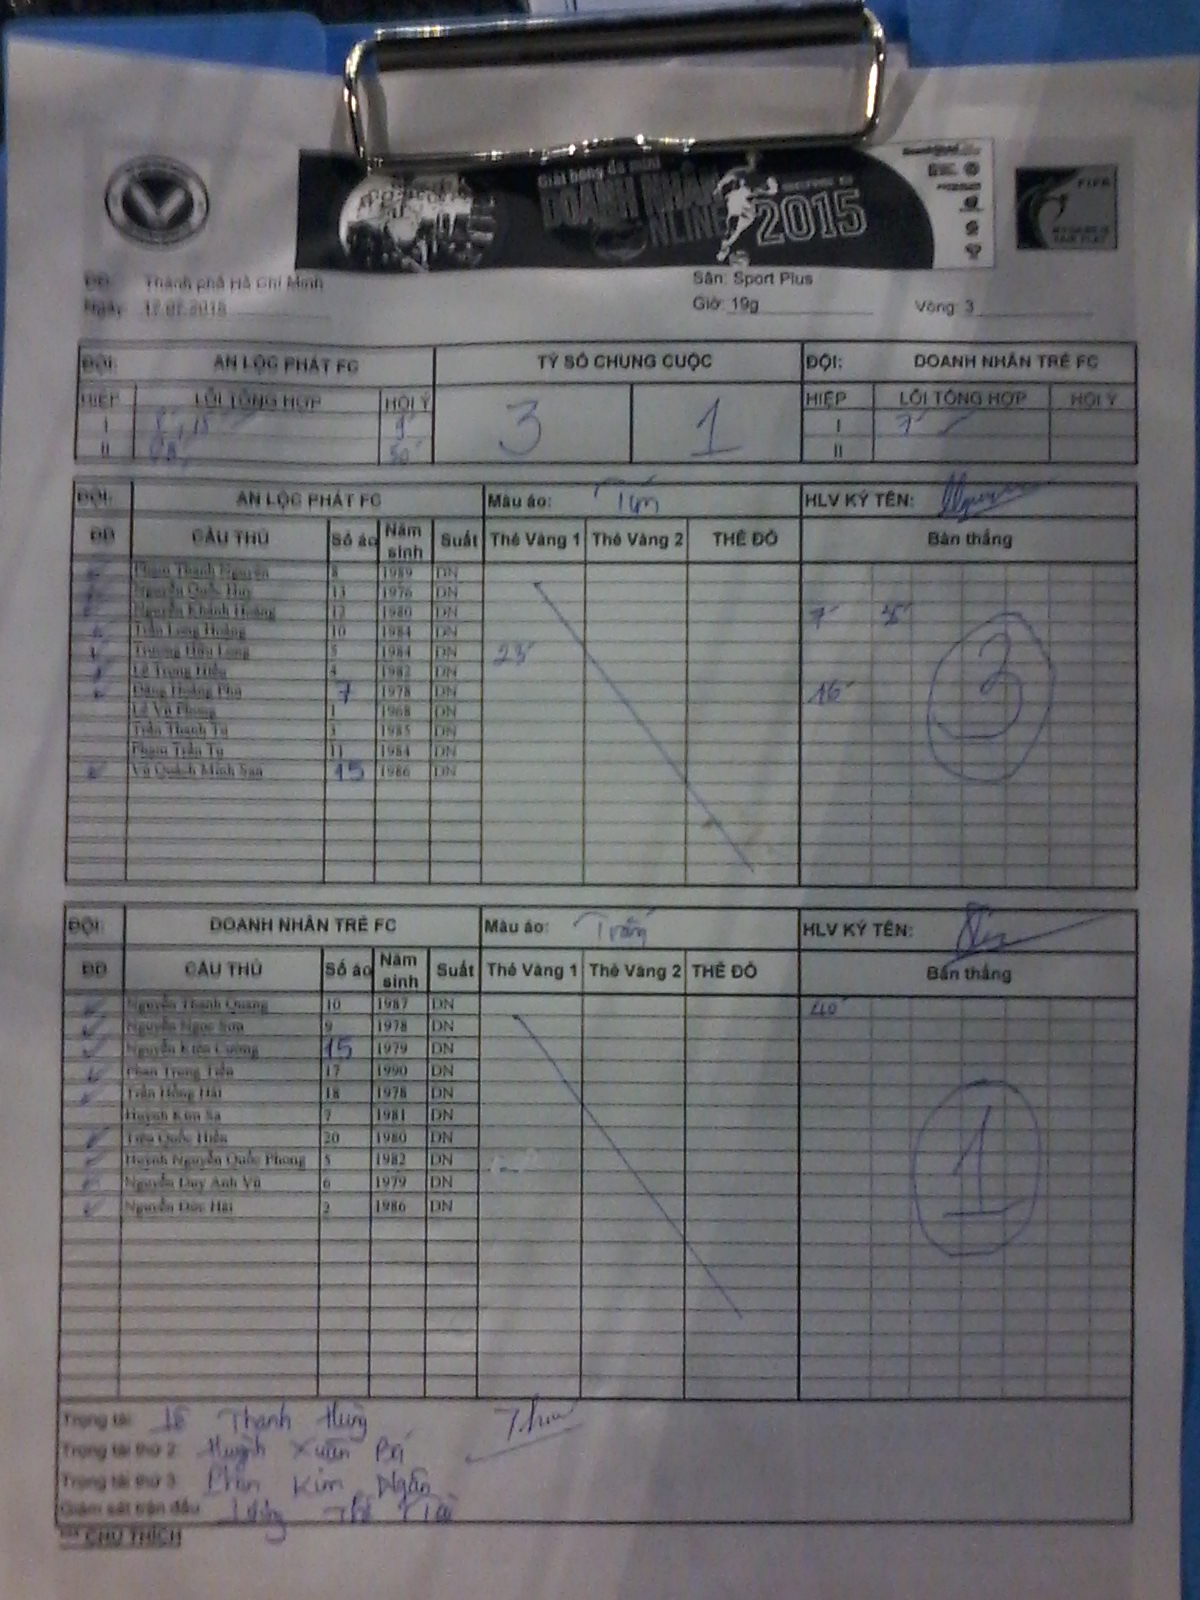 Giải bóng đá mini
DOANH NHÂN
ONLINE 2015
FIFA
MY GAME IS
FAIR PLAY
Thành phố Hồ Chí Minh Sân: Sport Plus
Ngày: 17.07.2015 Giờ: 19g Vòng: 3
ĐỘI: AN LỘC PHÁT FC TỶ SỐ CHUNG CUỘC ĐỘI: DOANH NHÂN TRẺ FC
HIỆP LỖI TỔNG HỢP HỘI Ý 3 1 HIỆP LỖI TỔNG HỢP HỘI Ý
I 9' I 7'
II 50' II
ĐỘI: AN LỘC PHÁT FC Màu áo: Tím HLV KÝ TÊN:
ĐD CẦU THỦ Số áo Năm sinh Suất Thẻ Vàng 1 Thẻ Vàng 2 THẺ ĐỎ Bàn thắng
Phạm Thanh Nguyên 8 1989 DN
Nguyễn Quốc Huy 13 1976 DN
Nguyễn Khánh Hoàng 12 1980 DN 7'
Trần Long Hoàng 10 1984 DN
Trương Hữu Long 5 1984 DN 23'
Lê Trung Hiếu 4 1982 DN
Đặng Hoàng Phú 7 1978 DN 16'
Lê Vũ Phong 1 1968 DN
Trần Thanh Tú 3 1985 DN
Phạm Trần Tú 11 1984 DN
Vũ Quách Minh San 15 1986 DN
3
ĐỘI: DOANH NHÂN TRẺ FC Màu áo: Trắng HLV KÝ TÊN:
ĐD CẦU THỦ Số áo Năm sinh Suất Thẻ Vàng 1 Thẻ Vàng 2 THẺ ĐỎ Bàn thắng
Nguyễn Thanh Quang 10 1987 DN 40'
Nguyễn Ngọc Sơn 9 1978 DN
Nguyễn Kiên Cường 15 1979 DN
Phan Trung Tiến 17 1990 DN
Trần Hồng Hải 18 1978 DN
Huỳnh Kim Sa 7 1981 DN
Tiêu Quốc Hiền 20 1980 DN
Huỳnh Nguyễn Quốc Phong 5 1982 DN
Nguyễn Duy Anh Vũ 6 1979 DN
Nguyễn Đức Hải 2 1986 DN
1
Trọng tài: Lê Thanh Hùng
Trọng tài thứ 2: Huỳnh Xuân
Trọng tài thứ 3: Kim Ngân
Giám sát trận đấu: Thế
*** CHÚ THÍCH